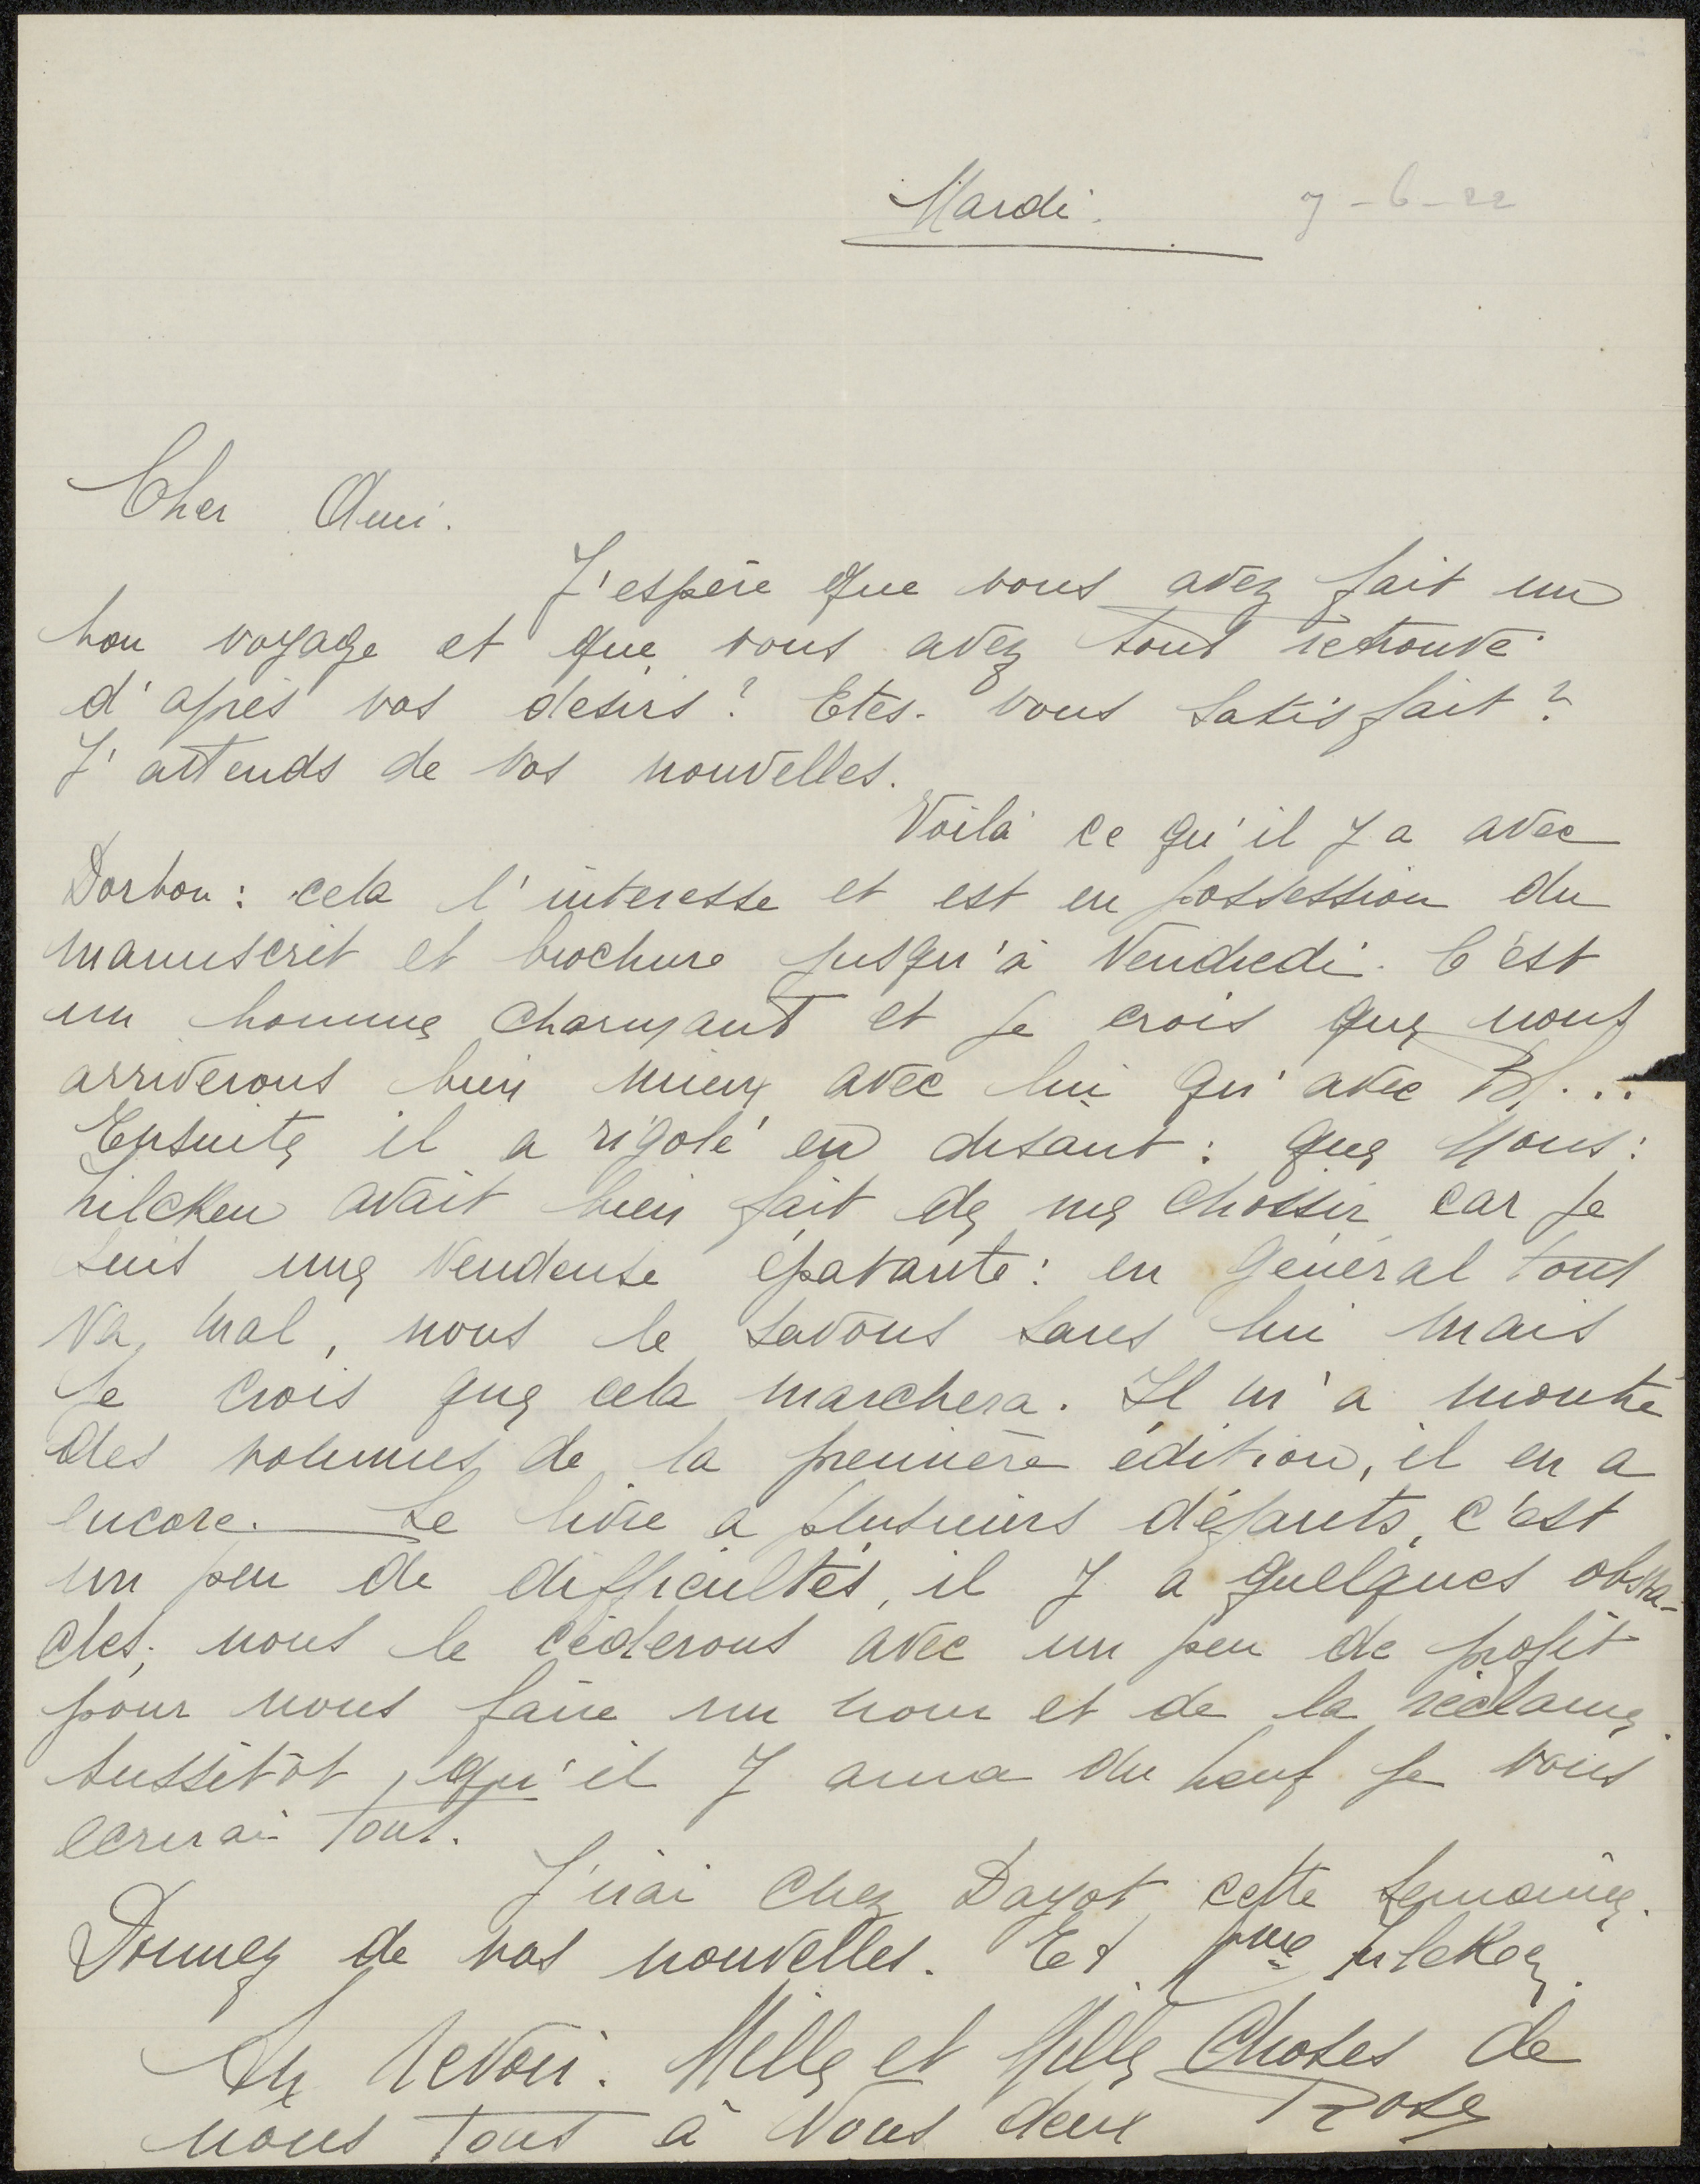 Mardi. 7-6-22
Cher Ami.
J'espère que vous avez fait un
bon voyage et que vous avez tout retrouvé
d'après vos desirs? Etes-vous satisfait?
J'attends de vos nouvelles.
Voilà ce qu'il y a avec
Dorbon: cela l'interesse et est en possession du
manuscrit et brochure jusqu'à Vendredi. C'est
un homme charmant et je crois que nous
arriverons bien mieux avec lui qu'avec Bl...
Ensuite il a rigolé en disant: que Mons:
Zilcken avait bien fait de me chossir car je
suis une vendeuse épatante: en général tout
va mal, nous le savons sans lui mais
je crois que cela marchera. Il m'a montré
des volumes de la première édition, il en a
encore. Le livre a plusieurs défauts, c'est
un peu de difficultés, il y a quelques obsta-
cles; nous le céderons avec un peu de profit
pour nous faire un nom et de la réclame.
Aussitôt qu'il y aura du neuf je vous
ecrirai tout.
J'irai chez Dayot cette semaine.
Donnez de vos nouvelles. Et Mme Zilcken.
Au revoir. Mille et Mille Choses de
nous tous à Vous deux Rose